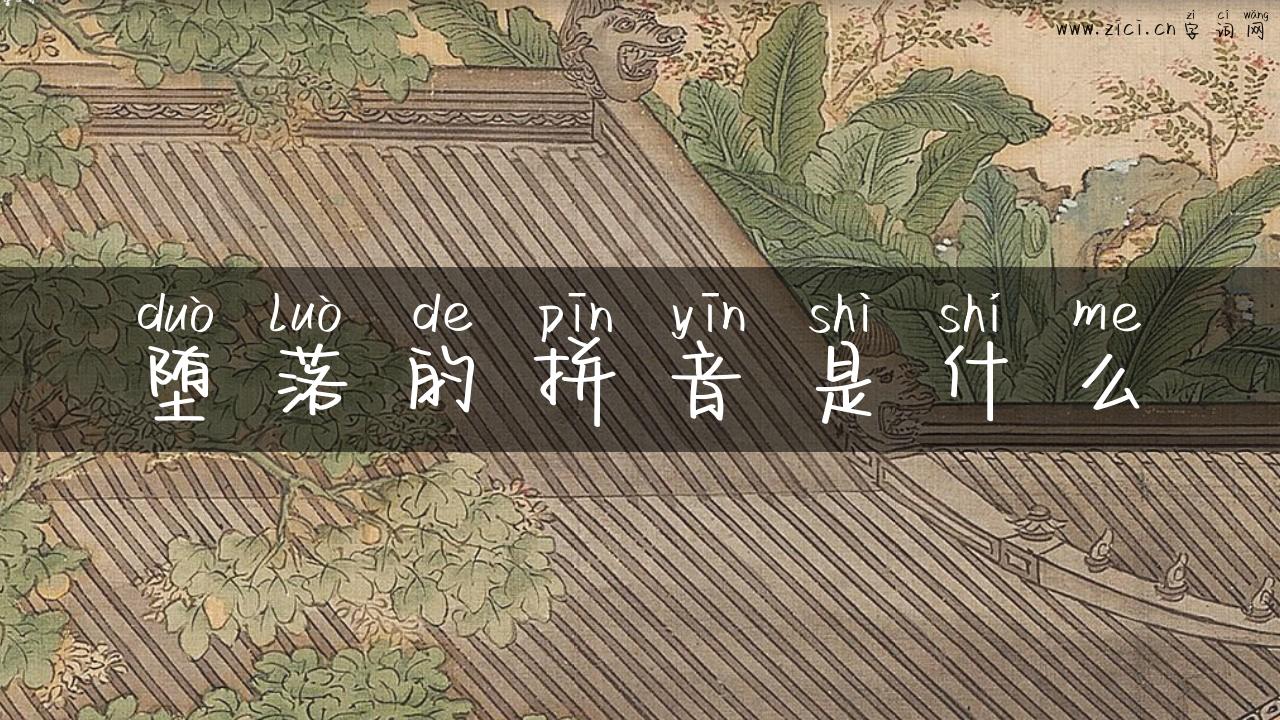 zì cí wǎng
www.zici.cn 字词网
duò luò de pīn yīn shì shí me
堕落的拼音是什么